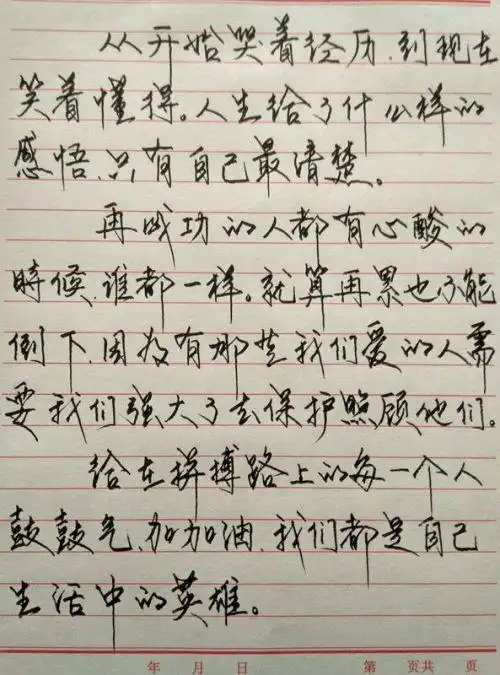 从开始哭着经历、到现在
笑着懂得。人生给了什么样的
感悟、只有自己最清楚。
再成功的人都有心酸的
時候、谁都一样。就算再累也不能
倒下、因为有那些我们爱的人需
要我们强大了去保护照顾他们。
给在拼搏路上的每一个人
鼓鼓气、加加油、我们都是自己
生活中的英雄。
年 月 日 第 页共 页